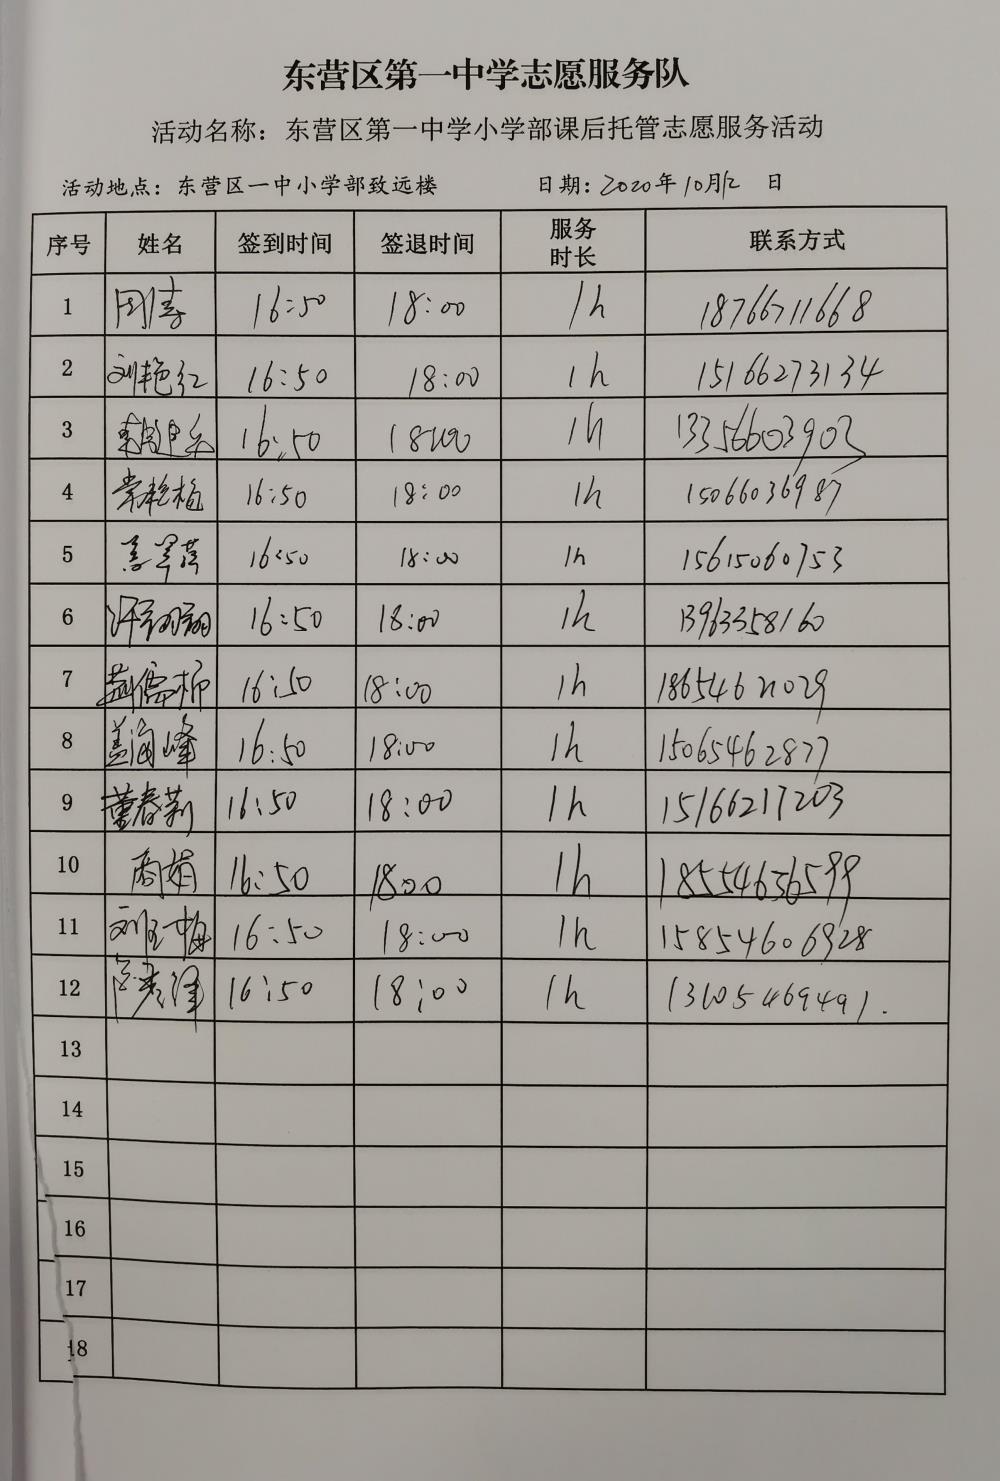 东营区第一中学志愿服务队
活动名称：东营区第一中学小学部课后托管志愿服务活动
活动地点：东营区一中小学部致远楼 日期：2020年10月12日
序号 姓名 签到时间 签退时间 服务时长 联系方式
1 周涛 16:50 18:00 1h 18766711668
2 刘艳红 16:50 18:00 1h 15166273134
3 16:50 18:00 1h 13356603903
4 常艳梅 16:50 18:00 1h 15066036987
5 16:50 18:00 1h 15615060753
6 许翔翔 16:50 18:00 1h 13963358160
7 16:50 18:00 1h 18654621029
8 盖海峰 16:50 18:00 1h 15065462877
9 董春莉 16:50 18:00 1h 15166217203
10 商娟 16:50 18:00 1h 18554636599
11 刘玉梅 16:50 18:00 1h 15854606928
12 16:50 18:00 1h 13105469491.
13
14
15
16
17
18